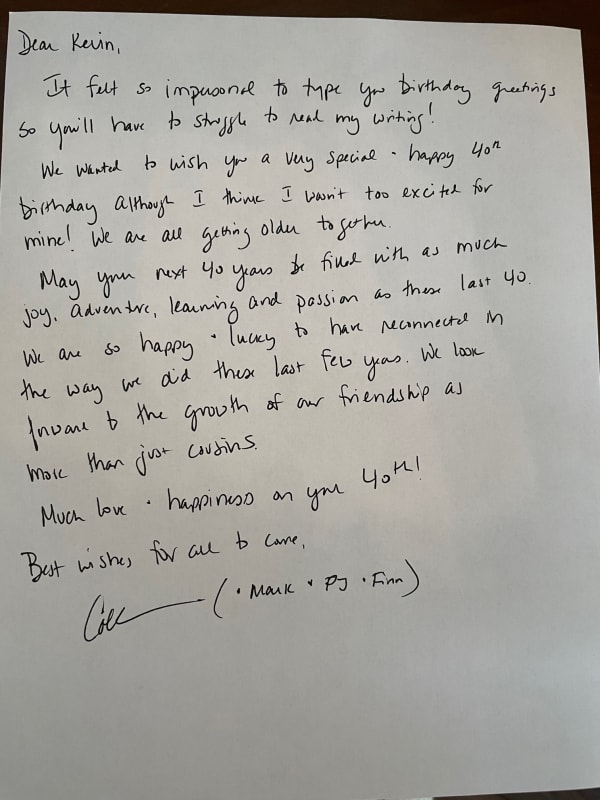 Dear Kevin,
It felt so impersonal to type you birthday greetings
so you'll have to struggle to read my writing!
We wanted to wish you a very special + happy 40th
birthday although I think I wasn't too excited for
mine! We are all getting older together.
May your next 40 years be filled with as much
joy, adventure, learning and passion as these last 40.
We are so happy + lucky to have reconnected in
the way we did these last few years. We look
forward to the growth of our friendship as
more than just cousins.
Much love + happiness on your 40th!
Best wishes for all to come,
(+ Mark + PJ + Finn)